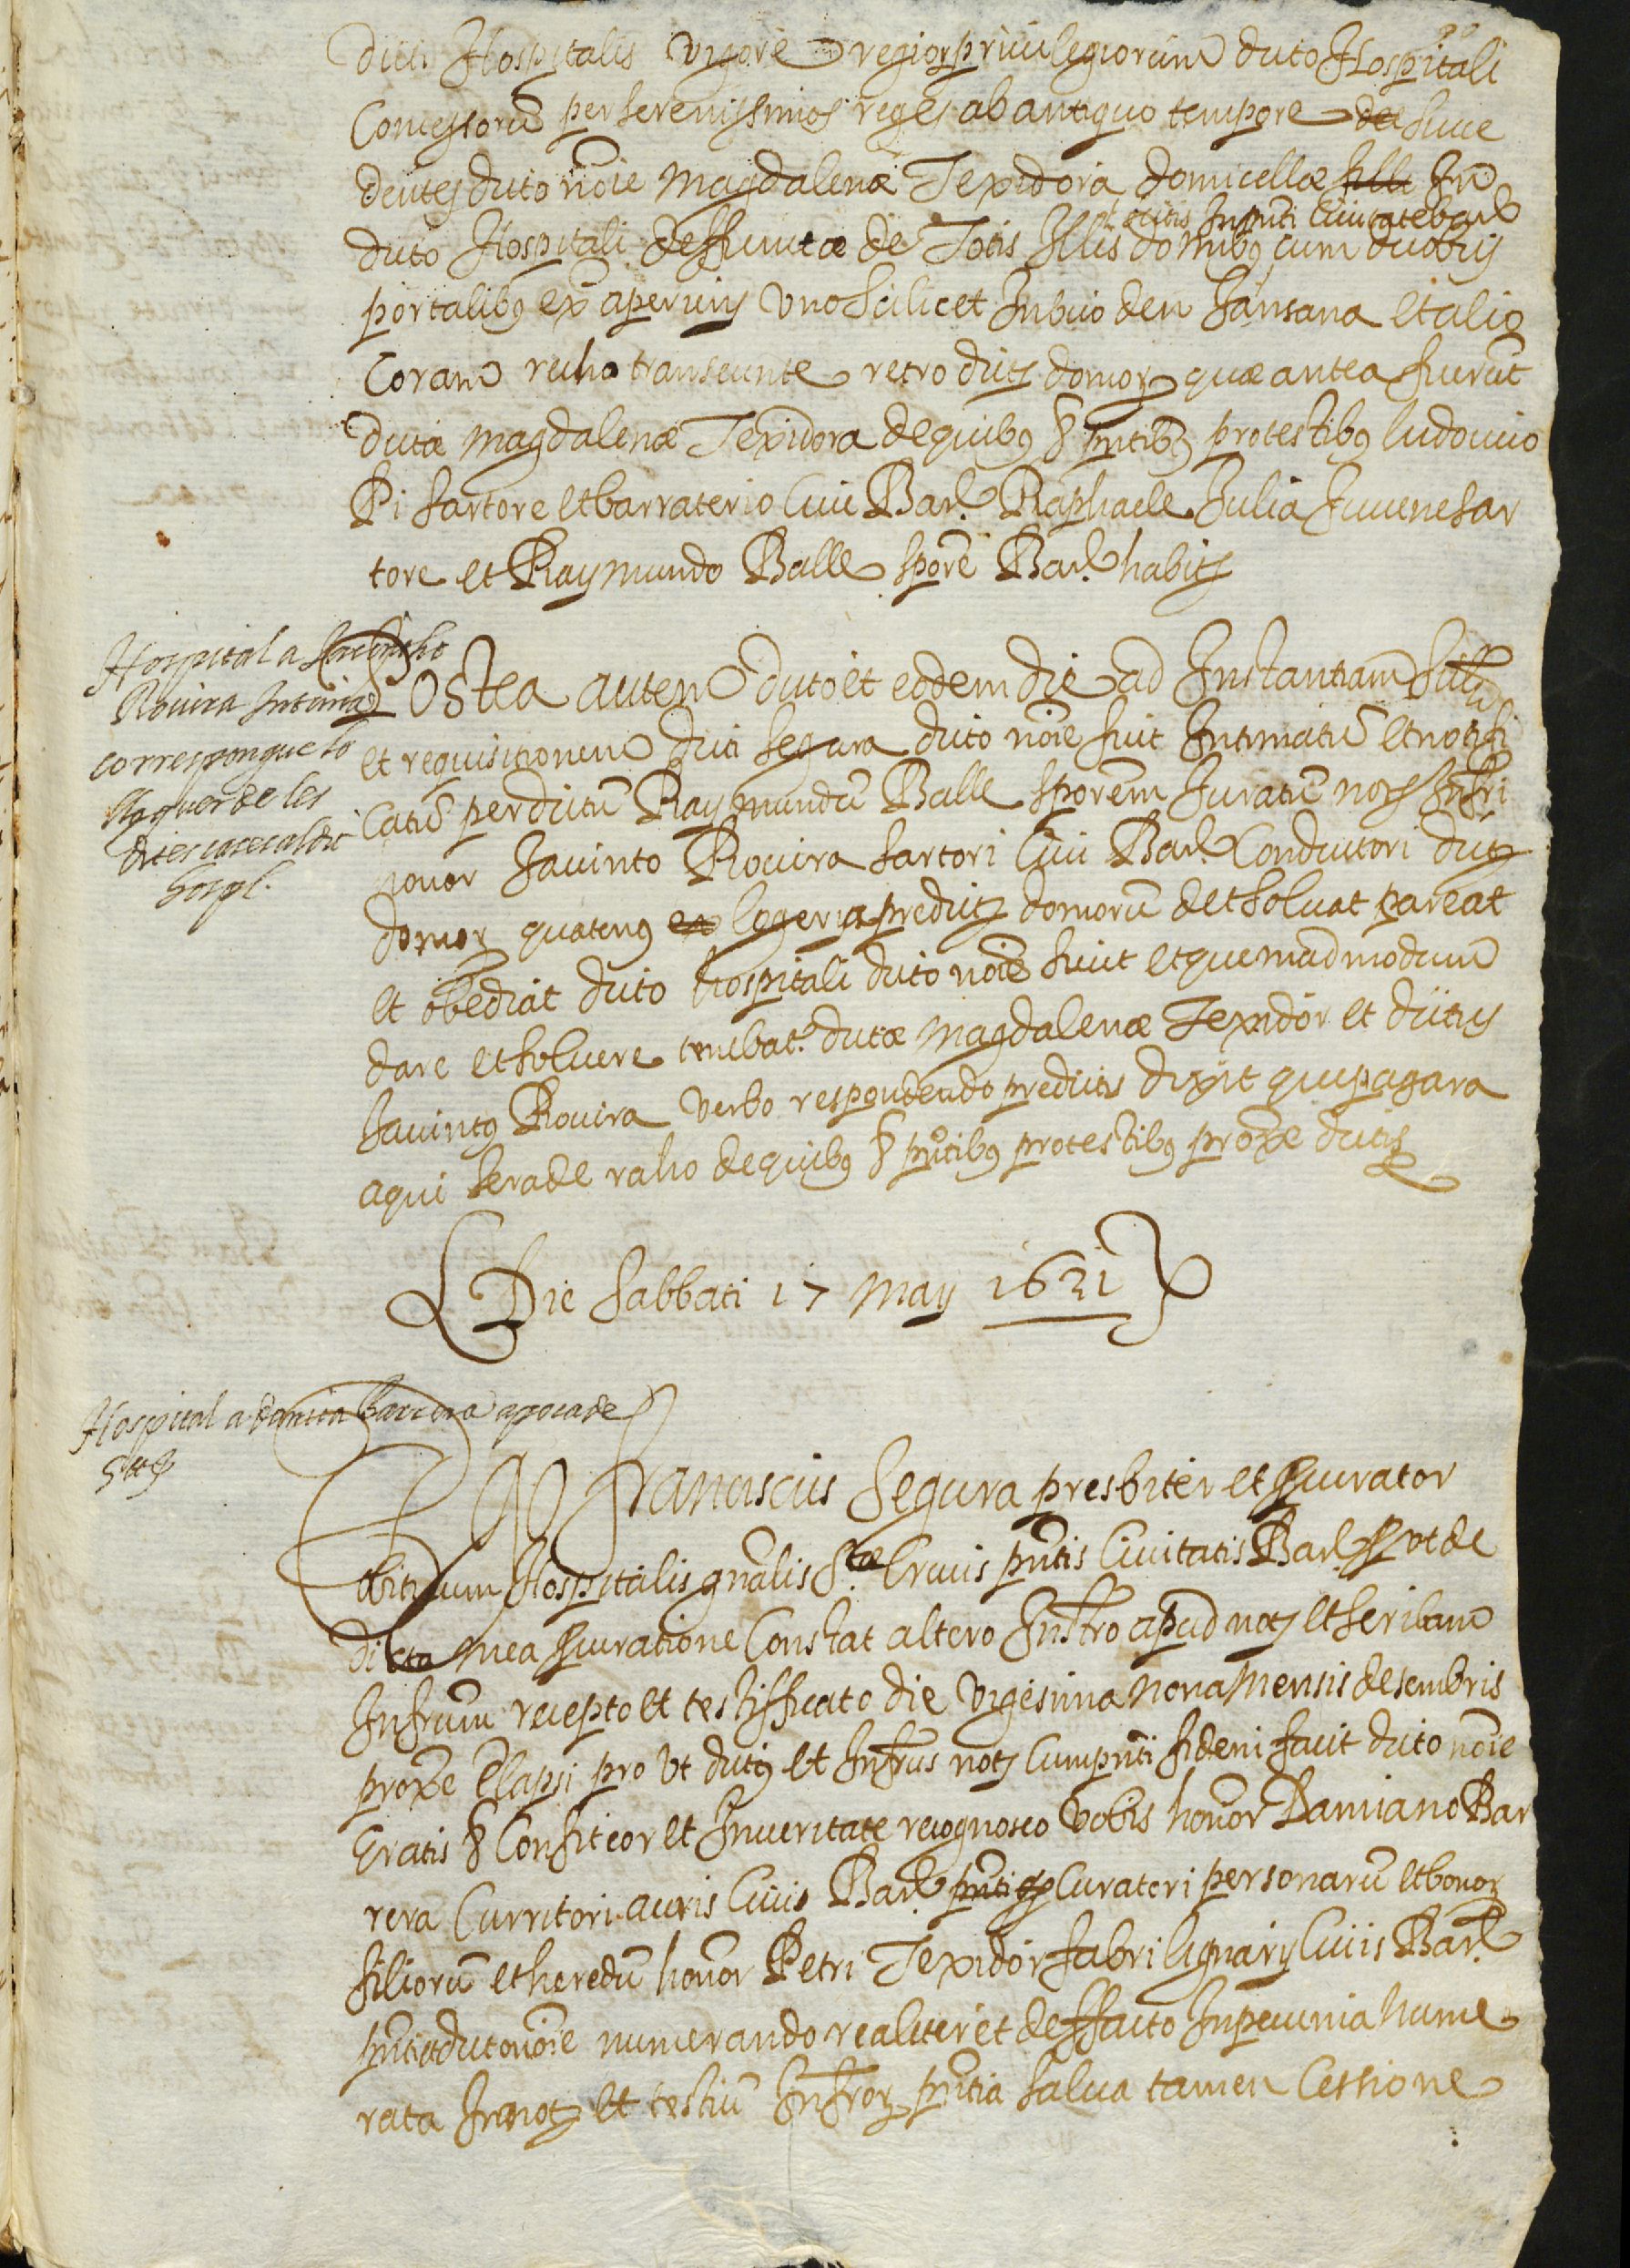 dicti Hospitalis vigore regior priuilegiorum dicto Hospitali
Concessorũ per serenissimos reges ab antiquo tempore de succe
dentes dicto nõie Magdalenæ Texidora domicellæ filli In
sitis In pñti Ciuitate Barl
dicto Hospitali deffunctæ de Totis Illis domibus cum duobus
portalibus ex aperiens vno scilicet In vico den Jansana et alio
Coram recho transeunte retro dictis domor quæ antea fuerũt
dictæ Magdalenæ Texidora de quibus & pñtibus pro testibus ludouico
Pi sartore et barraterio Ciue Bar. Raphaele Julia Juuene sar
tore et Raymundo Balle spore Bar. habits
Hospital a Jacincho
Rouira Intima
correspongue lo
lloguer de les
dites cases al dit
hospl.
Postea autem dicto et eodem die ad Instantiam
et requisitionem dicti Segura dicto nõie fuit Intimatũ et notifi
catũ per dictũ Raymundũ Balle sporem Juratũ nots Infri
honor Jacinto Rouira sartori Ciui Bar. Conductori dicts
domor quatenus ex logeria predicts domorũ det soluat pareat
et obediat dicto hospitali dicto nõie sicut et quemadmodum
dare et soluere tenebat. dictæ Magdalenæ Texidor et dictus
Jacintus Rouira verbo respondendo predictis dixit qui pagara
a qui sera de raho de quibus & pñtibus pro testibus proxe dictis
Die Sabbati 17 May 1621
Hospital a damia Barrera apoca de
5 ll
Ego Franciscus Segura presbiter et procurator
obituum Hospitalis gñalis S.tæ Crucis pñtis Ciuitatis Bar. put de
dicta mea procuratione Constat altero Instro apud nots et scribam
Infrum recepto et testifficato die vigesima nona Mensis desembris
proxe Elapsi pro vt dictus et Infrus nots Cum pñti fidem facit dicto nõie
Gratis & Confiteor et In veritate recognosco vobis honor Damiano Bar
rera Curritori auris Ciuis Bar. pñti Curatori personarũ et bonor
filiorũ et heredũ honor Petri Texidor fabri lignarij Ciuis Bar.
pñti dicto nõie numerando realiter et de ffacto In pecunia nume
rata In nots et testiũ Infror pñtia salua tamen Cessione